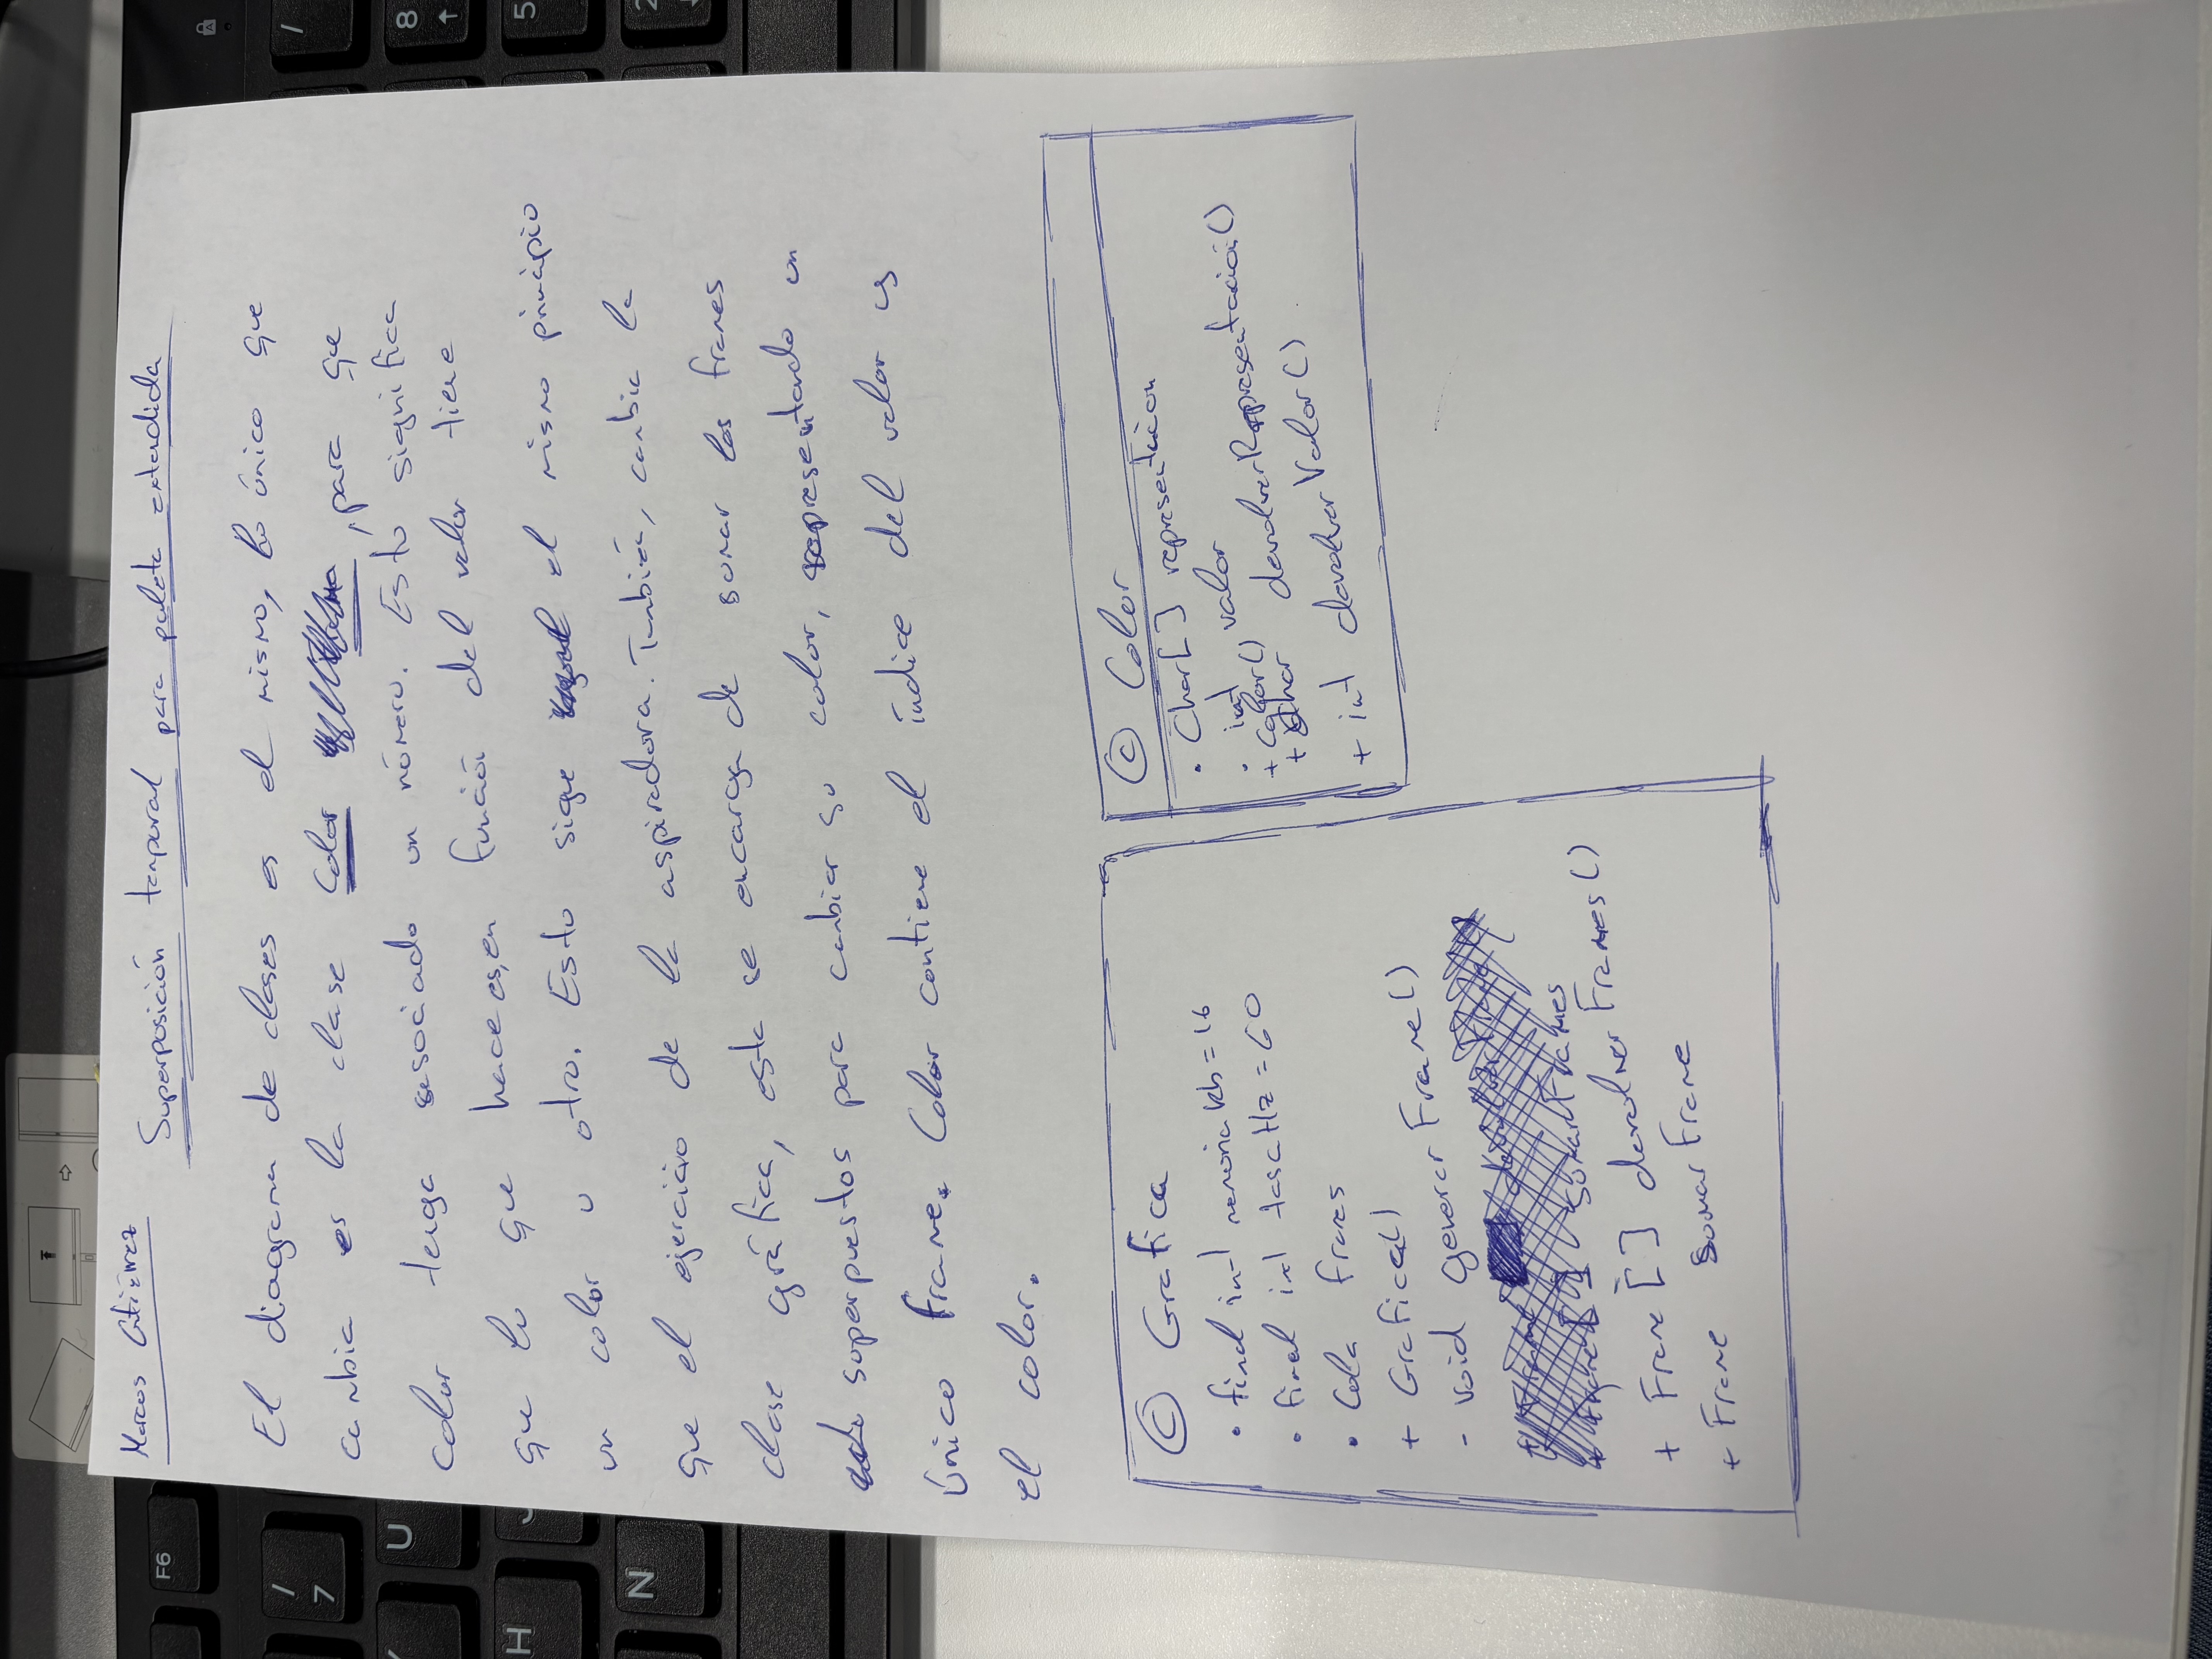 F6
Marcos Gutiérrez
Superposición temporal para paleta extendida
El diagrama de clases es el mismo, lo único que
cambia es la clase Color , para que
color tenga asociado un número. Esto significa
que lo que hace es, en función del valor tiene
un color u otro. Esto sigue el mismo principio
que el ejercicio de la aspiradora. También, cambia la
clase gráfica, esta se encarga de sumar los frames
superpuestos para cambiar su color, representando un
único frame. Color contiene el índice del valor y
el color.
© Grafica
• final int memoriaKb = 16
• final int tasaHz = 60
• Cola frames
+ Grafica()
- void generarFrame()
+ Frame[] devolverFrames()
+ Frame SumarFrame
© Color
• Char[] representacion
• int valor
+ Color()
+ char devolverRepresentación()
+ int devolverValor()
/
7
U
H
J
N
/
8
5
2